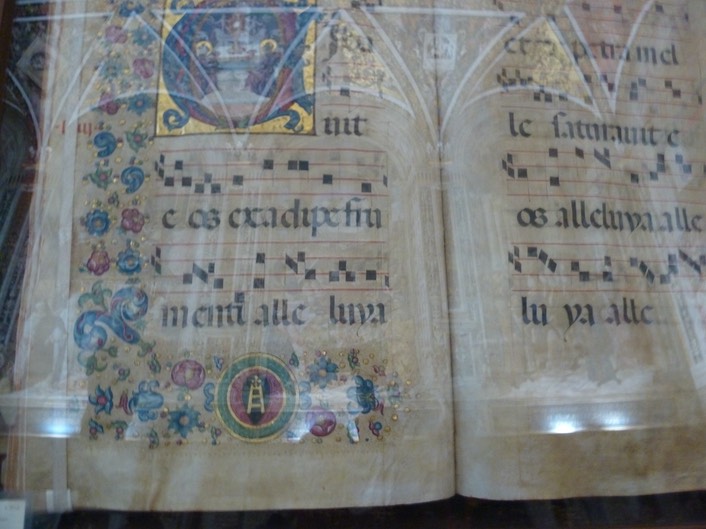 Ciba
uit
e os exadipe fru
menti alle luya
petra mel
le saturauit e
os alleluya.alle
lu ya alle